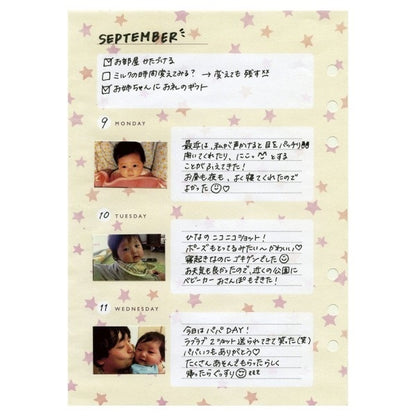 SEPTEMBER
お部屋かたづける
ミルクの時間変えてみる? → 変えても残す!!
お姉ちゃんにお礼のギフト
9 MONDAY
最近は、私が声かけると目をパッチリ
開いてくれたり、ニコッとする
ことがふえてきた!
お昼も夜も、よく寝てくれたので
よかった♡
10 TUESDAY
ひなのニコニコショット!
ポーズもとってるみたい〜かわいい♡
寝起きなのにゴキゲンでした
お天気も良かったので、近くの公園に
ベビーカーおさんぽもできた!
11 WEDNESDAY
今日はパパDAY!
ラブラブ2ショット送られてきて笑った(笑)
パパいつもありがとう♡
たくさんあそんでもらったらしく
帰ったらぐっすり zzz